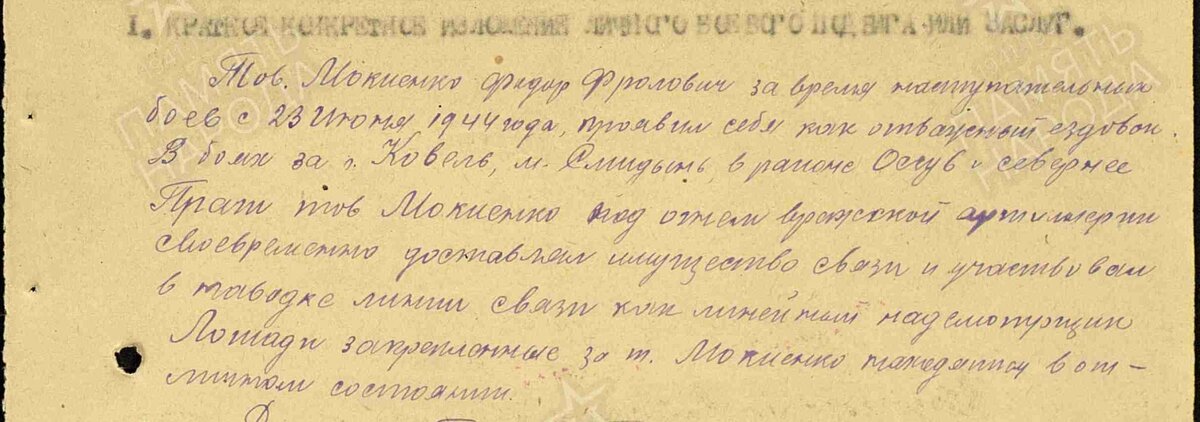 1. КРАТКОЕ КОНКРЕТНОЕ ИЗЛОЖЕНИЕ ЛИЧНОГО БОЕВОГО ПОДВИГА ИЛИ ЗАСЛУГ.
Тов. Мокиенко Федор Фролович за время наступательных
боев с 23 Июня 1944 года, проявил себя как отважный ездовой.
В боях за г. Ковель, м. Смидынь, в районе Оссув и севернее
Праги тов Мокиенко под огнем вражеской артиллерии
своевременно доставлял имущество связи и участвовал
в наводке линии связи как линейный надсмотрщик
Лошади закрепленные за т. Мокиенко находятся в от-
личном состоянии.